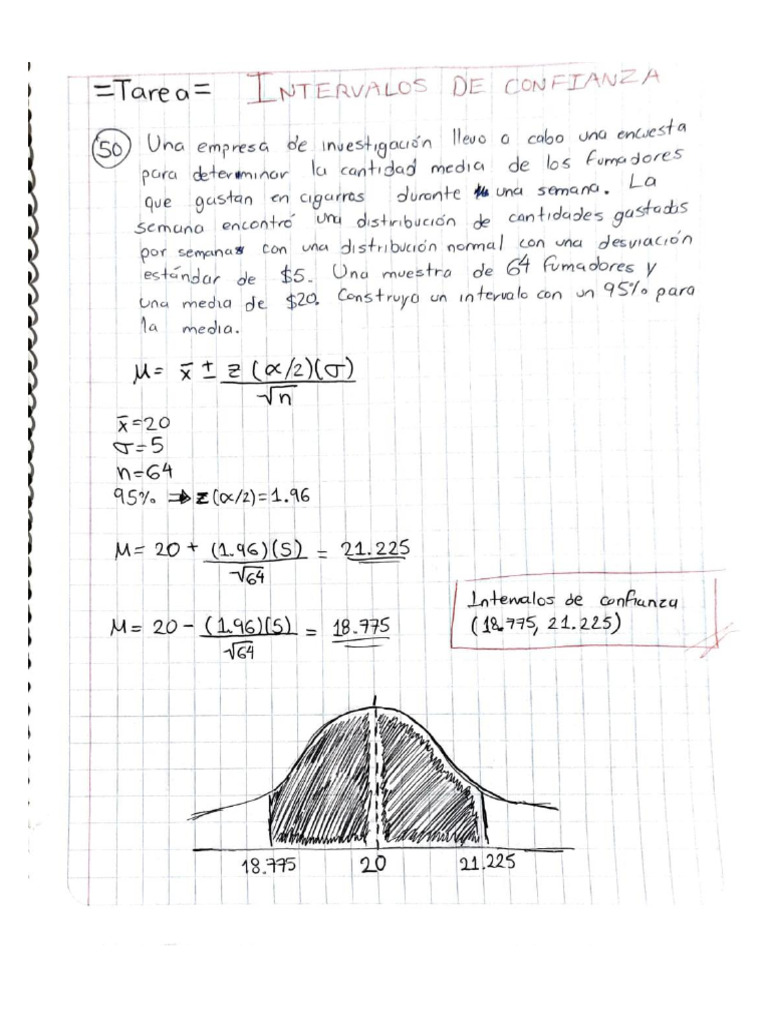 =Tarea= INTERVALOS DE CONFIANZA
50 Una empresa de investigación llevo a cabo una encuesta
para determinar la cantidad media de los fumadores
que gastan en cigarros durante una semana. La
semana encontró una distribución de cantidades gastadas
por semanas con una distribución normal con una desviación
estándar de $5. Una muestra de 64 fumadores y
una media de $20. Construya un intervalo con un 95% para
la media.
M= x̄ ± z (α/2)(σ)
√n
x̄=20
σ=5
n=64
95% ⇒ z(α/2)=1.96
M= 20 + (1.96)(5) = 21.225
√64
M= 20 - (1.96)(5) = 18.775
√64
Intervalos de confianza
(18.775, 21.225)
18.775 20 21.225